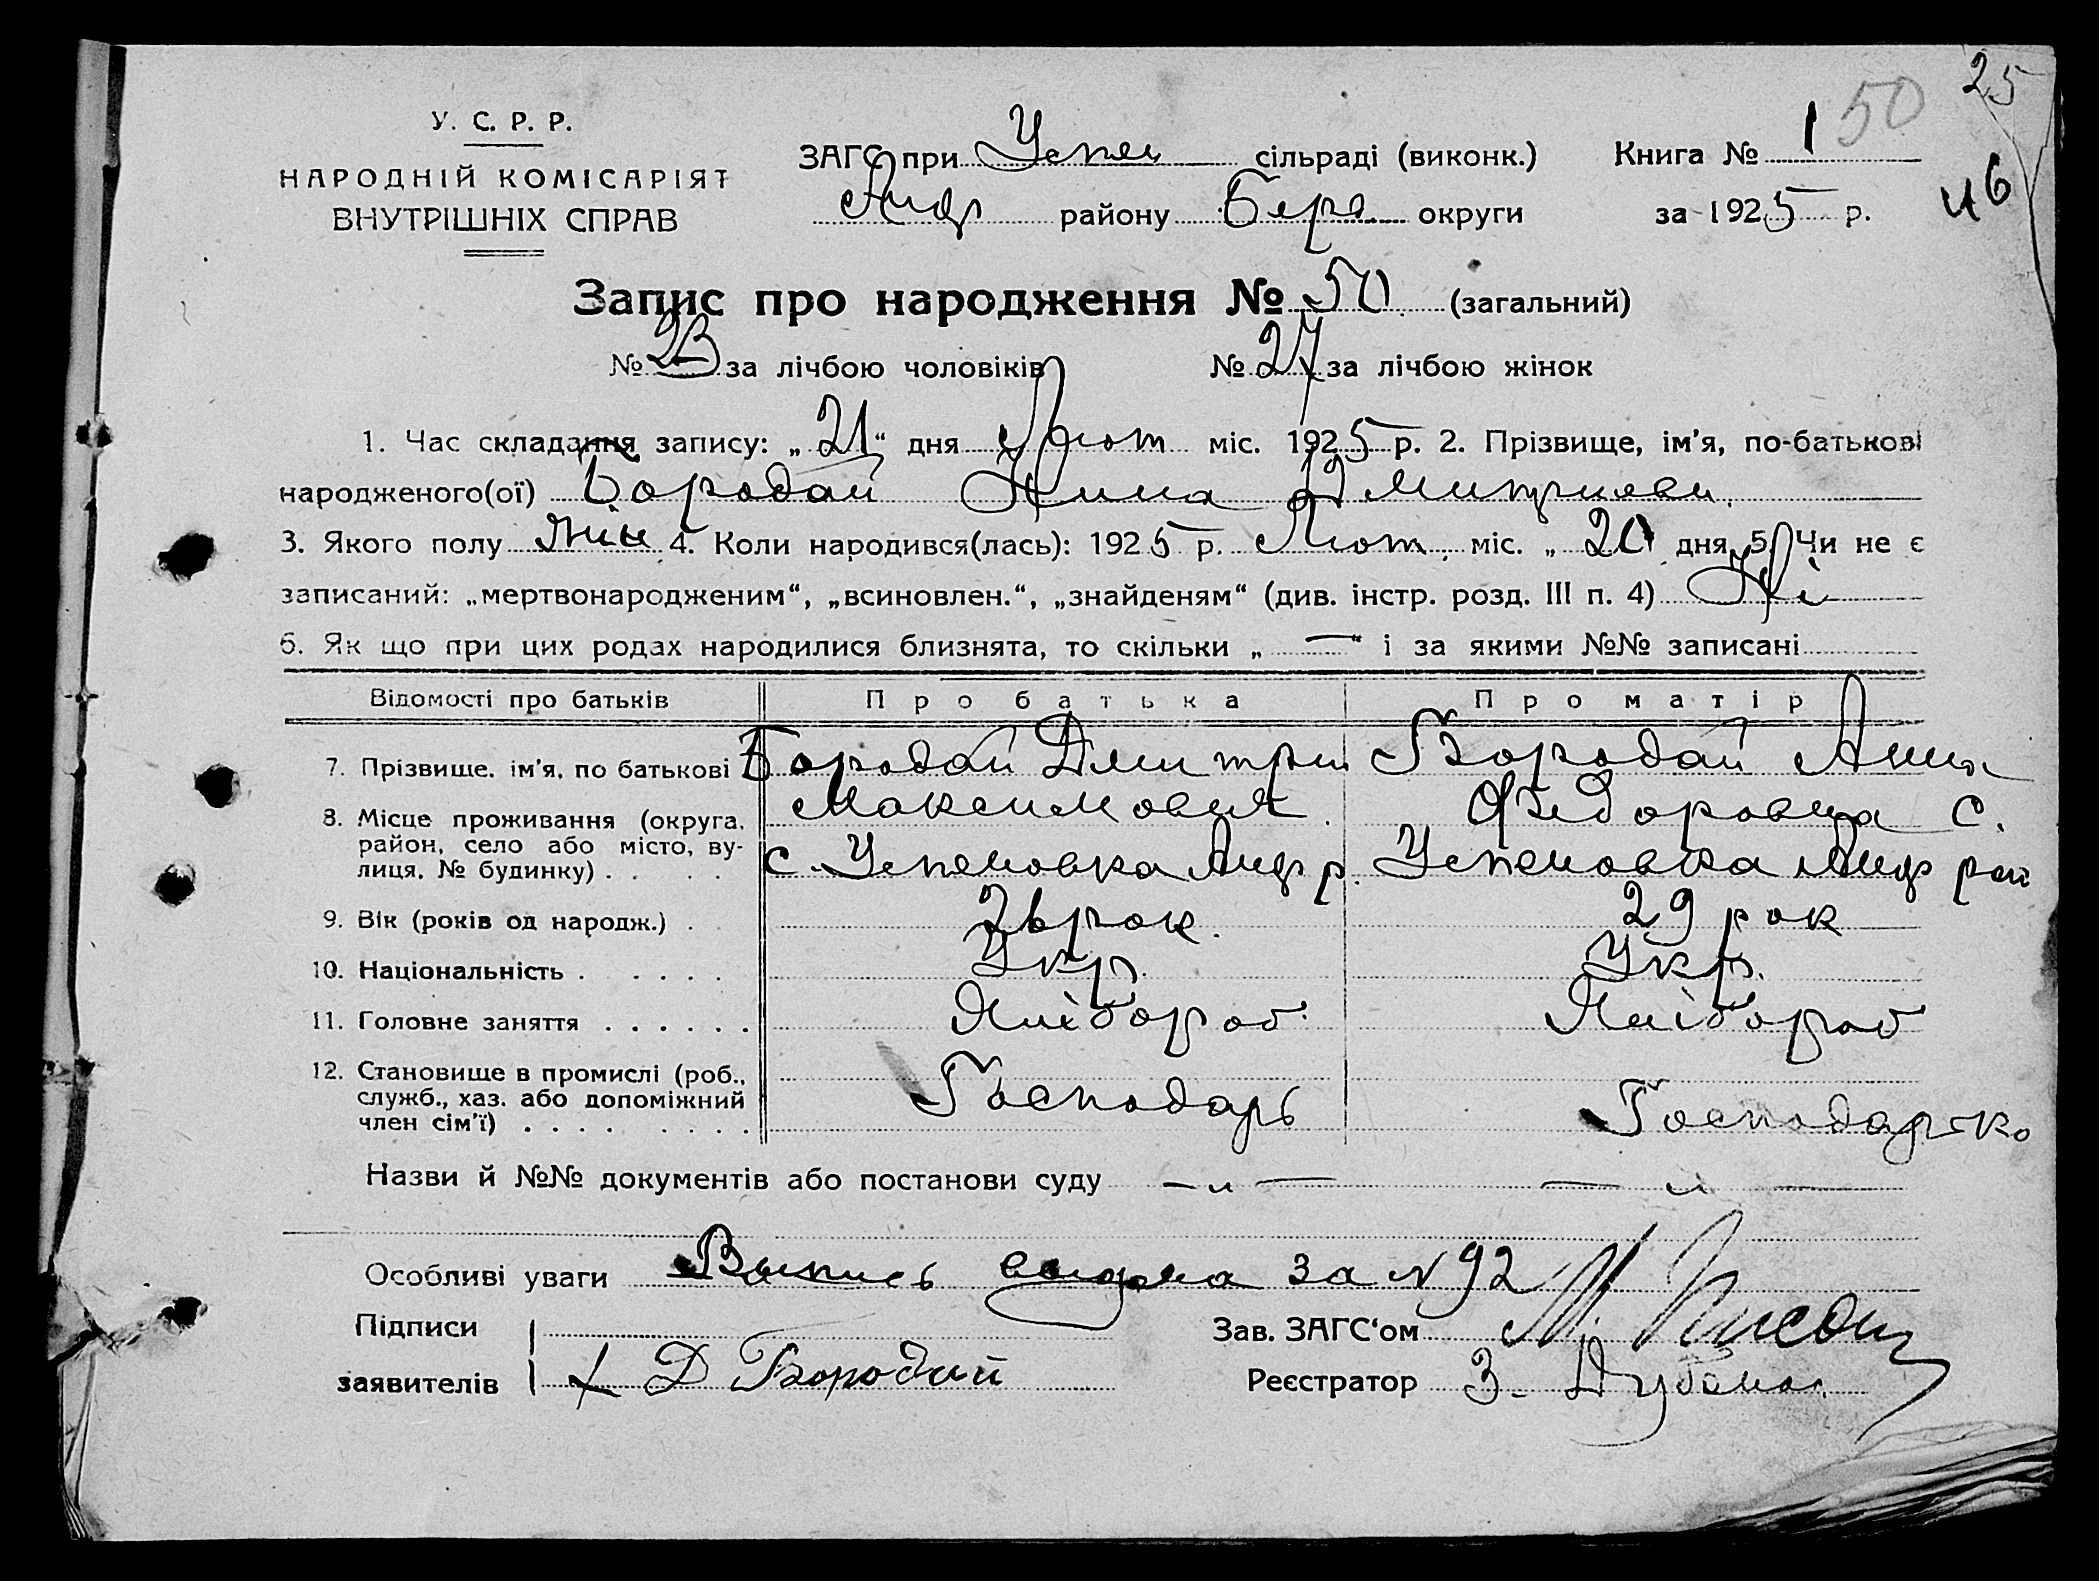 25
50
46
У. С. Р. Р.
НАРОДНІЙ КОМІСАРІЯТ
ВНУТРІШНІХ СПРАВ
ЗАГС при Успен сільраді (виконк.) Книга № 1
району Берд. округи за 1925 р.
Запис про народження № 50 (загальний)
№ 23 за лічбою чоловіків № 27 за лічбою жінок
1. Час складання запису: „21“ дня Лют міс. 1925 р. 2. Прізвище, ім'я, по-батькові
народженого(ої) Бородай Нина Дмитриевн.
3. Якого полу жін 4. Коли народився(лась): 1925 р. Лют. міс. „20 дня 5. Чи не є
записаний: „мертвонародженим“, „всиновлен.“, „знайденям“ (див. інстр. розд. III п. 4) Ні
6. Як що при цих родах народилися близнята, то скільки „—“ і за якими №№ записані
Відомості про батьків Про батька Про матір
7. Прізвище, ім'я, по батькові Бородай Дмитрий Бородай Анна
Максимович Федоровна с.
8. Місце проживання (округа, район, село або місто, вулиця, № будинку) . . . . с. Успеновка р. Успеновка рай
9. Вік (років од народж.) . 26 рок. 29 рок
10. Національність . . . . . . Укр. Укр.
11. Головне заняття . . . . . . Хлібороб Хлібороб
12. Становище в промислі (роб., служб., хаз. або допоміжний член сім'ї) . . . . . . . . Господарь Господарько
Назви й №№ документів або постанови суду — „ — — „ —
Особливі уваги Выпись выдана за №92
Підписи
заявителів Д Бородай
Зав. ЗАГС'ом М.
Реєстратор З.